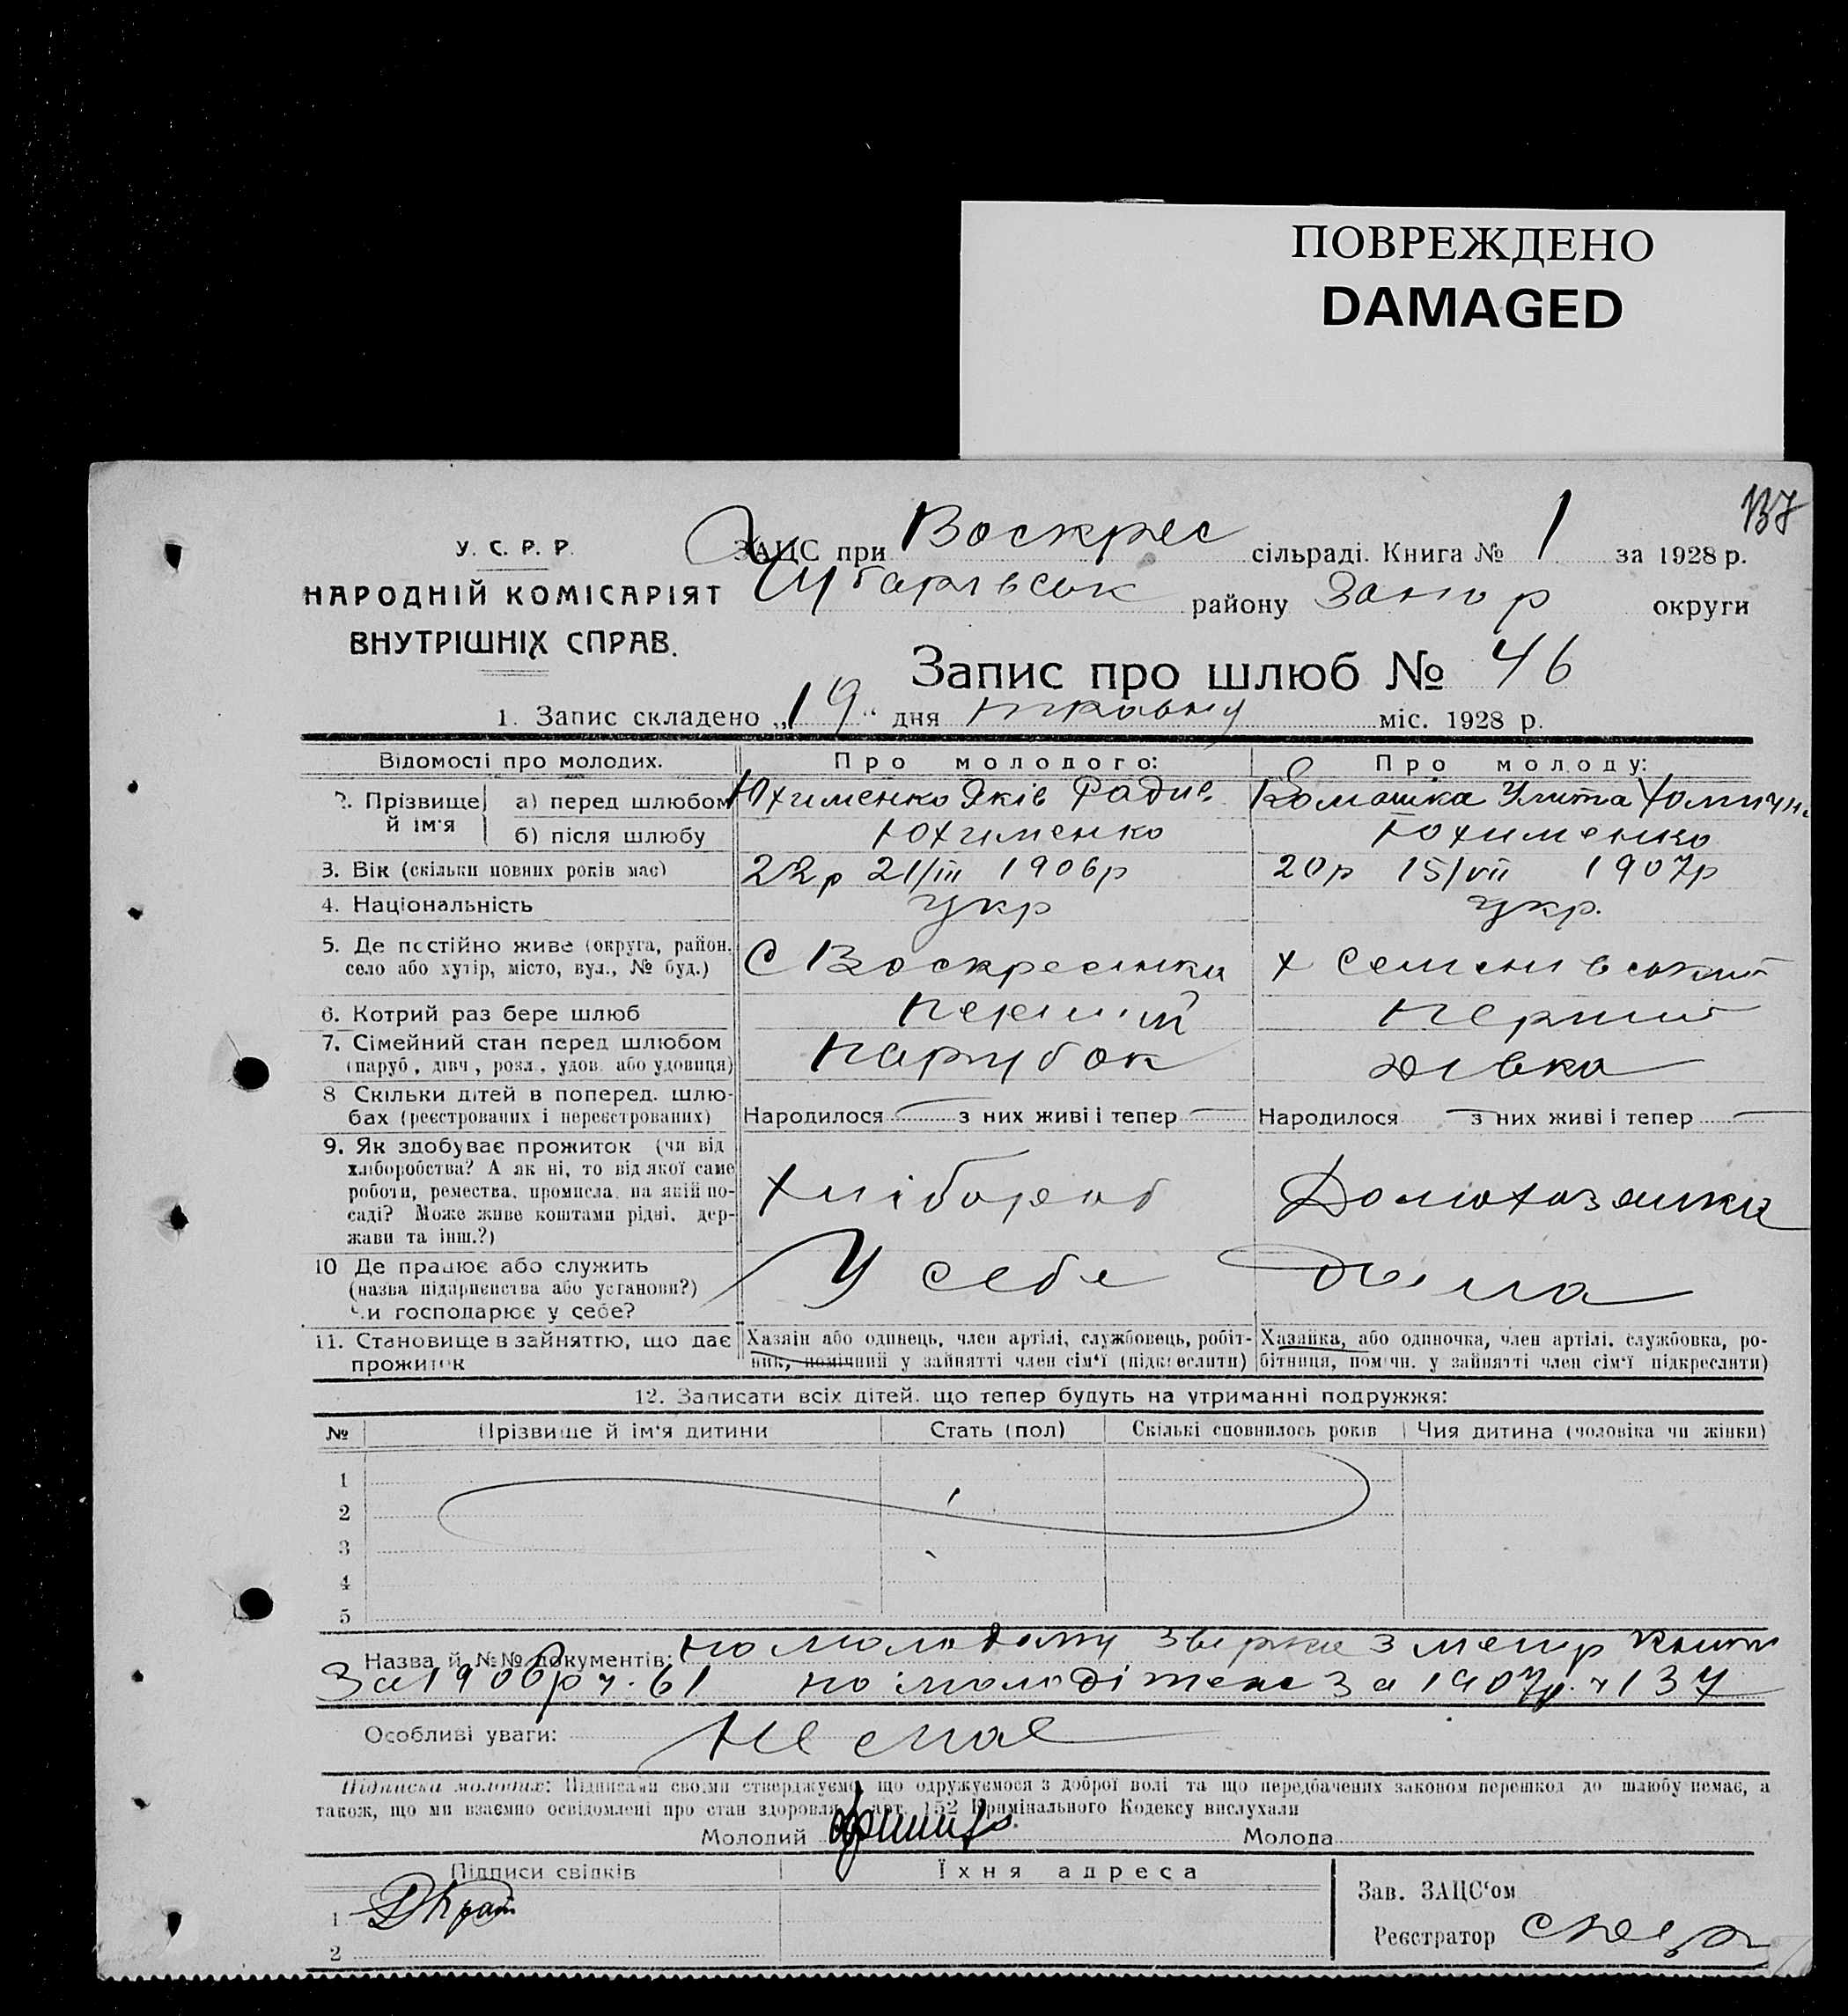 ПОВРЕЖДЕНО
DAMAGED
137
У. С. Р. Р.
НАРОДНІЙ КОМІСАРІЯТ
ВНУТРІШНІХ СПРАВ.
ЗАЦС при Воскрес сільраді. Книга № 1 за 1928 р.
Чубарівськ району Запор округи
Запис про шлюб № 46
1. Запис складено „19“ дня травню міс. 1928 р.
Відомості про молодих. Про молодого: Про молоду:
2. Прізвище й ім'я а) перед шлюбом Юхименко Яків Радив. Комашка Улита Хомични
б) після шлюбу Юхименко Юхименко
3. Вік (скільки повних років має) 22р 21/III 1906р 20р 15/VII 1907р
4. Національність укр укр.
5. Де постійно живе (округа, район,
село або хутір, місто, вул., № буд.) С Воскресенка х Семенівський
6. Котрий раз бере шлюб перший перший
7. Сімейний стан перед шлюбом
(паруб., дівч., розл., удов. або удовиця) парубок дівка
8 Скільки дітей в поперед. шлю-
бах (реєстрованих і нереєстрованих) Народилося — з них живі і тепер — Народилося — з них живі і тепер —
9. Як здобуває прожиток (чи від
хліборобства? А як ні, то від якої саме
роботи, ремества, промисла, на якій по-
саді? Може живе коштами рідні, дер-
жави та інш.?)
Хлібороб Домохазяйка
10 Де працює або служить
(назва підприємства або установи?)
Чи господарює у себе?
У себе дома
11. Становище в зайняттю, що дає
прожиток
Хазяїн або одинець, член артілі, службовець, робіт-
ник, помічний у зайнятті член сім'ї (підкреслити)
Хазяйка, або одиночка, член артілі, службовка, ро-
бітниця, помічн. у зайнятті член сім'ї підкреслити)
12. Записати всіх дітей, що тепер будуть на утриманні подружжя:
№ Прізвище й ім'я дитини Стать (пол) Скількі сповнилось років Чия дитина (чоловіка чи жінки)
1
2
3
4
5
Назва й №№ документів: по молодому звірка з метр книги
За 1906р ч. 61 по молоді теж за 1907р. ч 137
Особливі уваги: Не має
Підписка молодих: Підписами своїми стверджуємо, що одружуємося з доброї волі та що передбачених законом перешкод до шлюбу немає, а
також, що ми взаємно освідомлені про стан здоровля й арт. 152 Кримінального Кодексу вислухали
Молодий Молода
Підписи свідків Їхня адреса
1
2
Зав. ЗАЦС'ом
Реєстратор